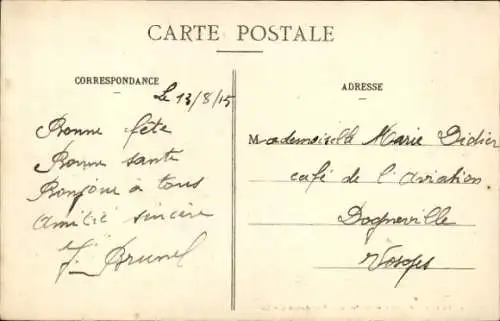 CARTE POSTALE
CORRESPONDANCE
Le 13/8/15
Bonne fête
Bonne santé
Bonjour à tous
Amitié sincère
J. Brunel
ADRESSE
Mademoiselle Marie Didier
café de l'aviation
Dogneville
Vosges